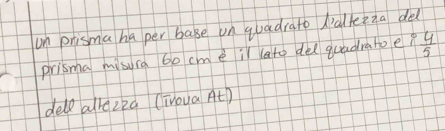 un prisma ha per base un quadrato l'altezza del
prisma misura 60 cm è il lato del quadrato e i 4/5
dell altezza (Trova At)